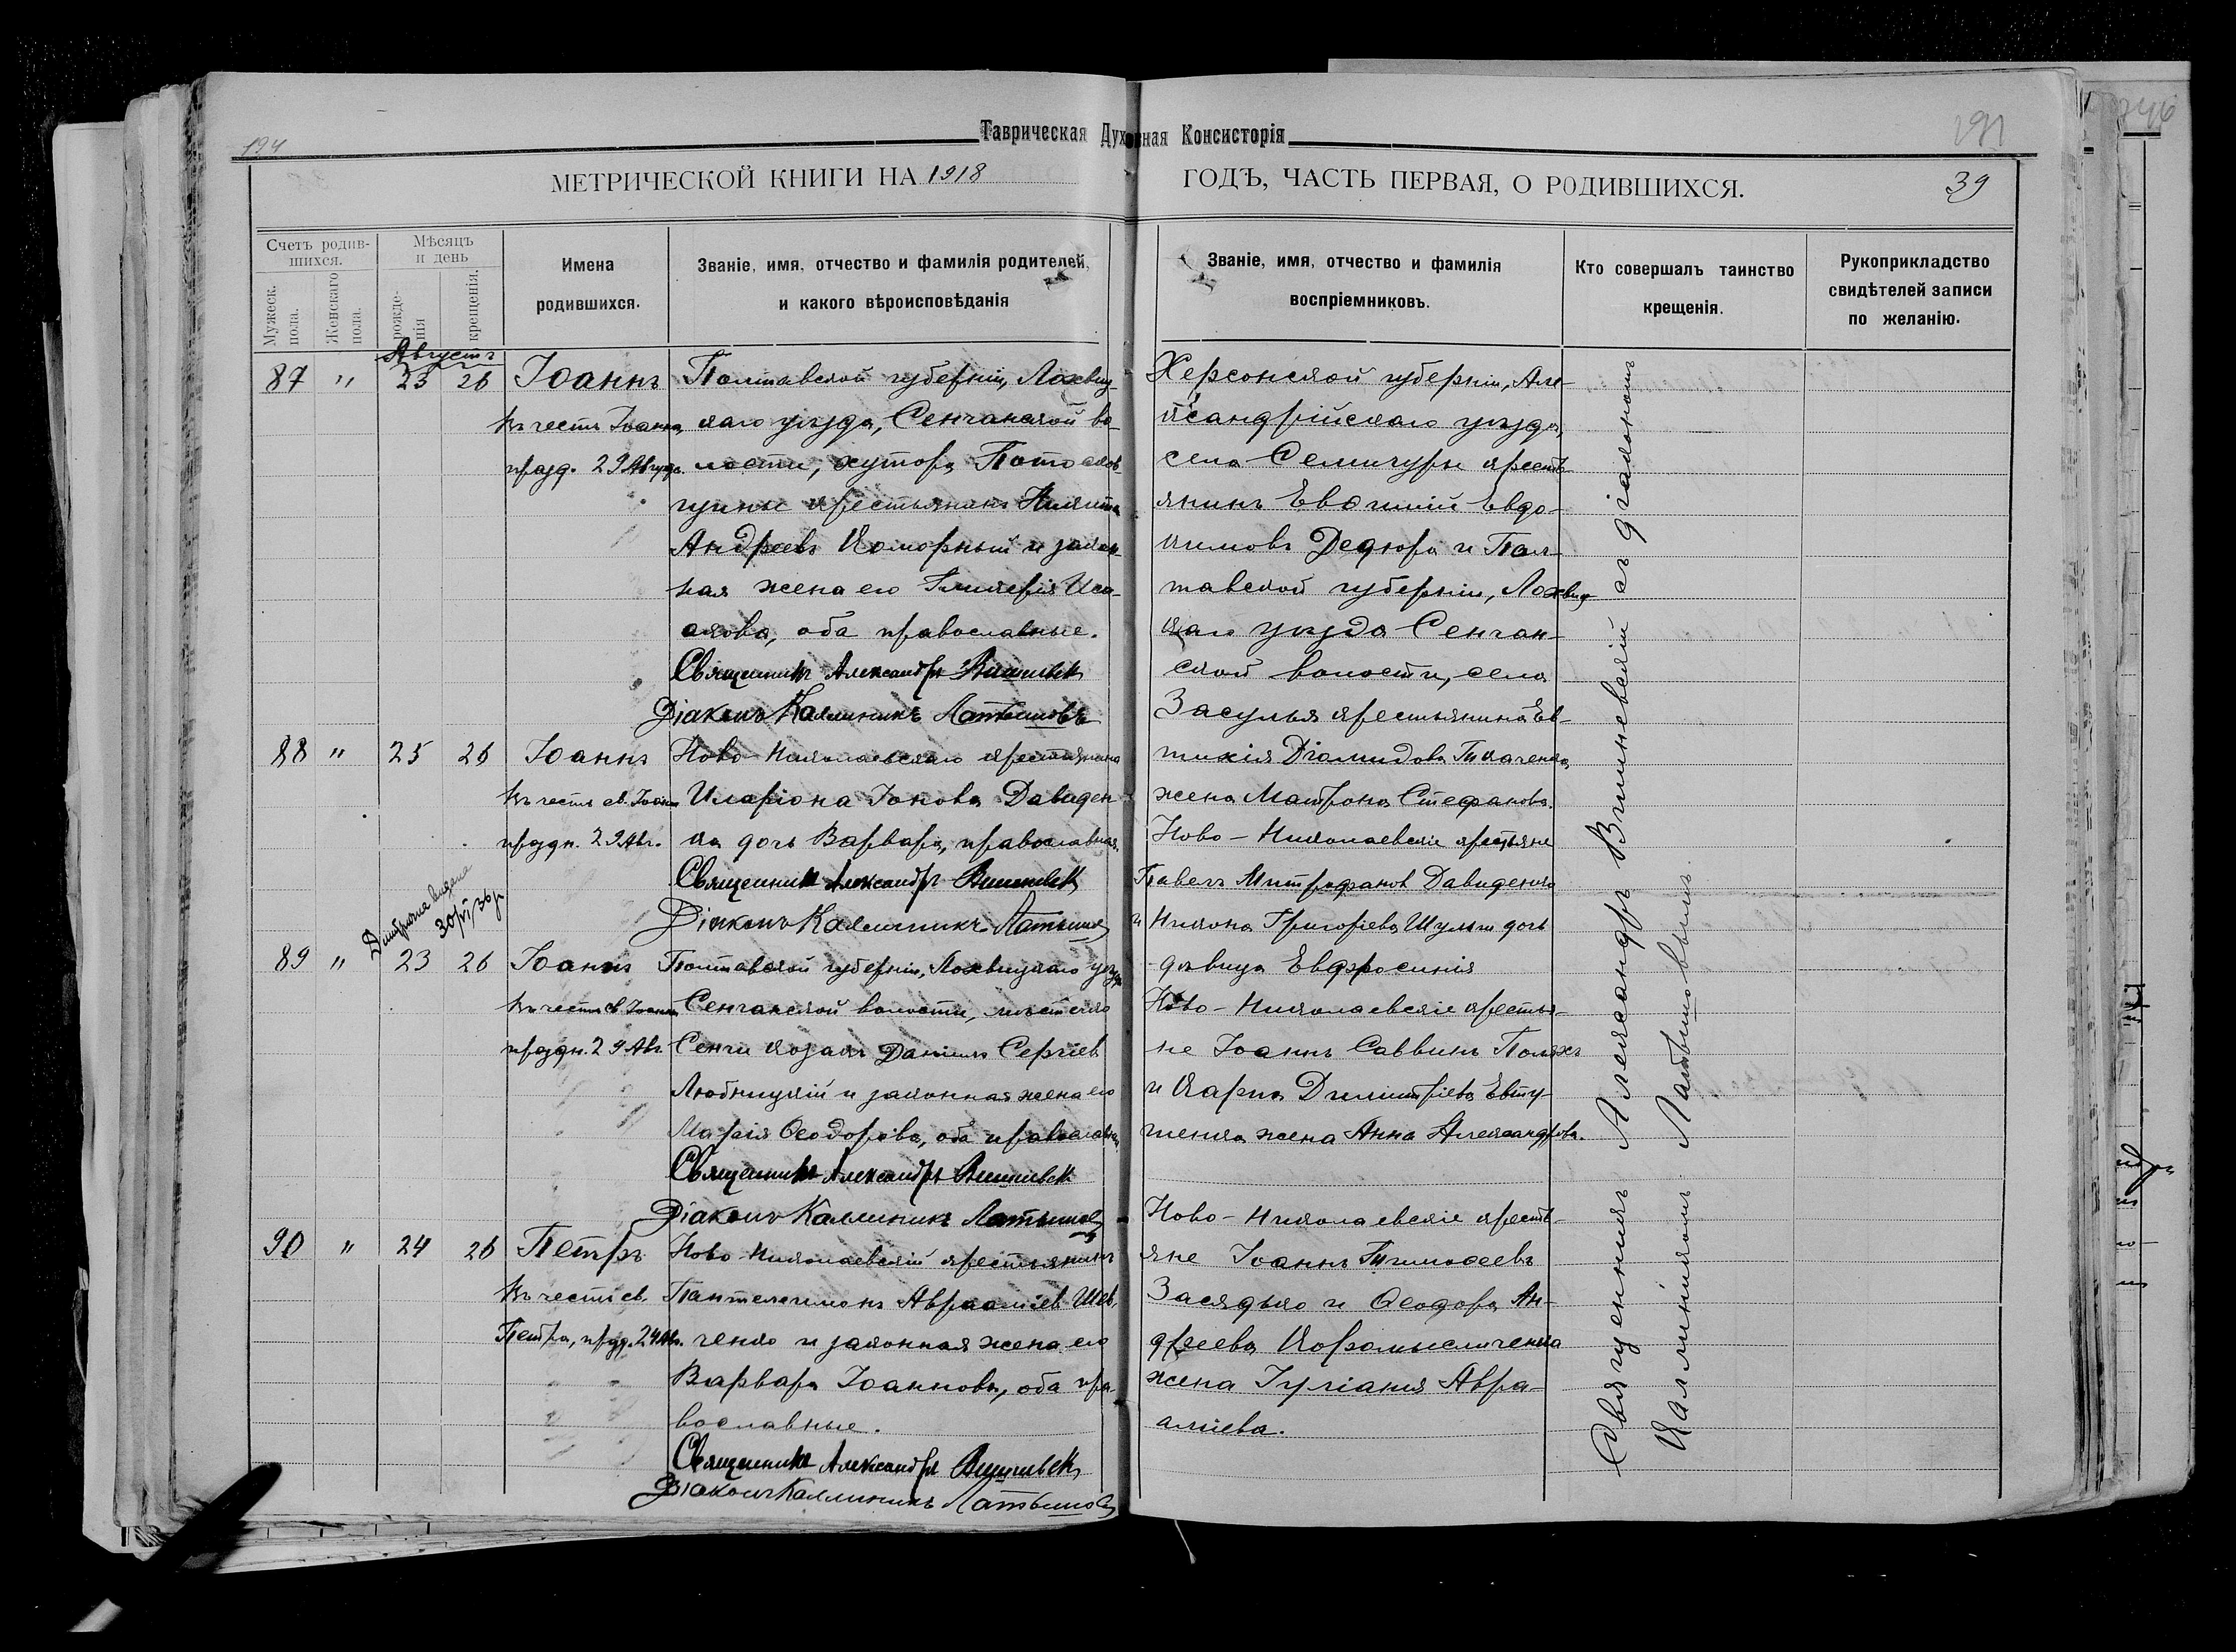 194
Таврическая Духовная Консисторія
191
МЕТРИЧЕСКОЙ КНИГИ НА 1918
ГОДЪ, ЧАСТЬ ПЕРВАЯ, О РОДИВШИХСЯ.
39
Счетъ родив-
шихся.
Мужеск.
пола.
Женскаго
пола.
Мѣсяцъ
и день
рожде-
нія
крещенія.
Имена
родившихся.
Званіе, имя, отчество и фамилія родителей,
и какого вѣроисповѣданія
Званіе, имя, отчество и фамилія
воспріемниковъ.
Кто совершалъ таинство
крещенія.
Рукоприкладство
свидѣтелей записи
по желанію.
Августъ
87 " 23 26 Іоаннъ
въ честь Іоанна
празд. 29 Август.
Полтавской губерніи, Лохвиц-
каго уѣзда, Сенчанской во-
лости, хутора
крестьянинъ Никита
Андреевъ Коморный и закон-
ная жена его Гликерія Иса-
акова, оба православные.
Священникъ Александръ Вишневскій
Діаконъ Каллиникъ Латышовъ
Херсонской губерніи, Але-
ксандрійскаго уѣзда,
села крестья-
нинъ Евфимій Евдо-
кимовъ Дедюра и Пол-
тавской губерніи, Лохвиц-
каго уѣзда Сенчан-
ской волости, села
Засулья крестьянина Ев-
тихія Діомидова Ткаченка
жена Матрона Стефанова.
88 " 25 26 Іоаннъ
въ честь св. Іоанна
праздн. 29 Авг.
Ново-Николаевскаго крестьянина
Иларіона Іонова Давиден-
ка дочь Варвара, православная.
Священникъ Александръ Вишневскій
Діаконъ Каллиникъ Латышовъ
Ново-Николаевскіе крестьяне
Павелъ Митрофановъ Давиденко
и Никона Григоріева Шульги дочь
дѣвица Евфросинія
Дмитрия видана
30/VI/36 р
89 " 23 26 Іоаннъ
въ честь св. Іоанна
праздн. 29 Авг.
Полтавской губерніи, Лохвицкаго уѣзда
Сенчанской волости, мѣстечка
Сенчи козакъ Даніилъ Сергіевъ
Любицкій и законная жена его
Марія Ѳеодорова, оба православные
Священникъ Александръ Вишневскій
Діаконъ Каллиникъ Латышовъ
Ново-Николаевскіе крестья-
не Іоаннъ Саввинъ Поляхъ
и Карпа Димитріева Евту-
шенка жена Анна Александрова.
90 " 24 26 Петръ
въ честь св.
Петра, празд. 24 Авг.
Ново-Николаевскій крестьянинъ
Пантелеимонъ Авраміевъ Шев-
ченко и законная жена его
Варвара Іоаннова, оба пра-
вославные.
Священникъ Александръ Вишневскій
Діаконъ Каллиникъ Латышовъ
Ново-Николаевскіе кресть-
яне Іоаннъ Тимоѳеевъ
Засядько и Ѳеодора Ан-
дреева Коромысличенка
жена Іуліанія Авра-
аміева.
Священникъ Александръ Вишневскій съ діакономъ
Каллиникомъ Латышовымъ.